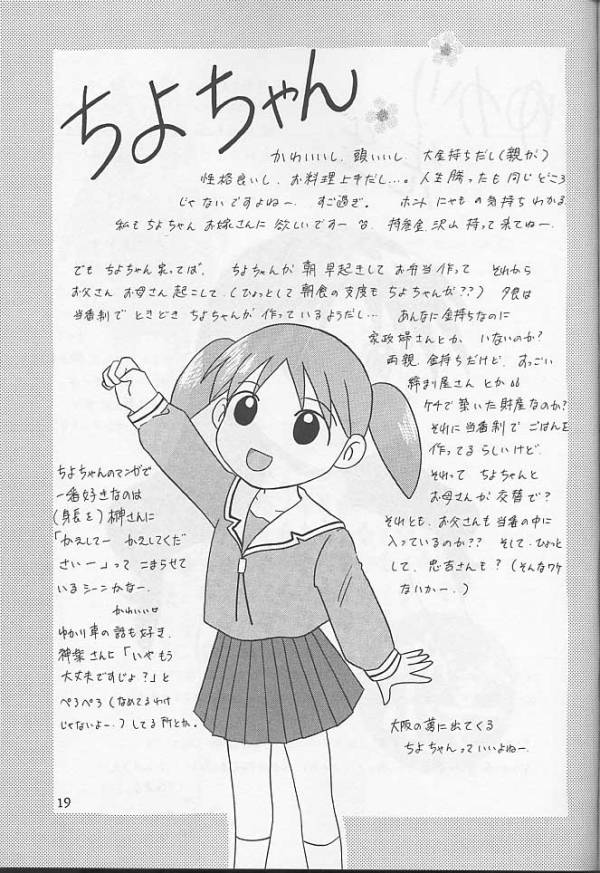 ちよちゃん
かわいいし、頭いいし、大金持ちだし(親が)
性格良いし、お料理上手だし…。人生勝ったも同じどころ
じゃないですよねー。すご過ぎ。ホント にゃもの気持ちわかる
私も ちよちゃん お嫁さんに 欲しいですー 持参金 沢山 持って来てねー。
でも ちよちゃん家ってば、ちよちゃんが 朝 早起きして お弁当作って それから
お父さん お母さん 起こして、(ひょっとして 朝食の支度も ちよちゃんが??) 夕食は
当番制で ときどき ちよちゃんが 作っているようだし… あんなに 金持ちなのに
家政婦さんとか いないのか?
両親、金持ちだけど、すっごい
締まり屋さん とか
ケチで 築いた 財産なのか?
それに 当番制で ごはんを
作ってるらしいけど、
それって ちよちゃんと
お母さんが 交替で?
それとも、お父さんも 当番の中に
入っているのか?? そして、ひょっと
して、忠吉さんも? (そんなワケ
ないかー。)
ちよちゃんのマンガで
一番好きなのは
(身長を) 榊さんに
「かえしてー かえしてくだ
さいー」って こまらせて
いるシーンかなー。
かわいい
ゆかり車の話も好き。
神楽さんに「いやもう
大丈夫ですじょ?」と
ぺろぺろ(なめてるわけ
じゃないよー。)してる所とか。
大阪の夢に出てくる
ちよちゃんって いいよねー
19